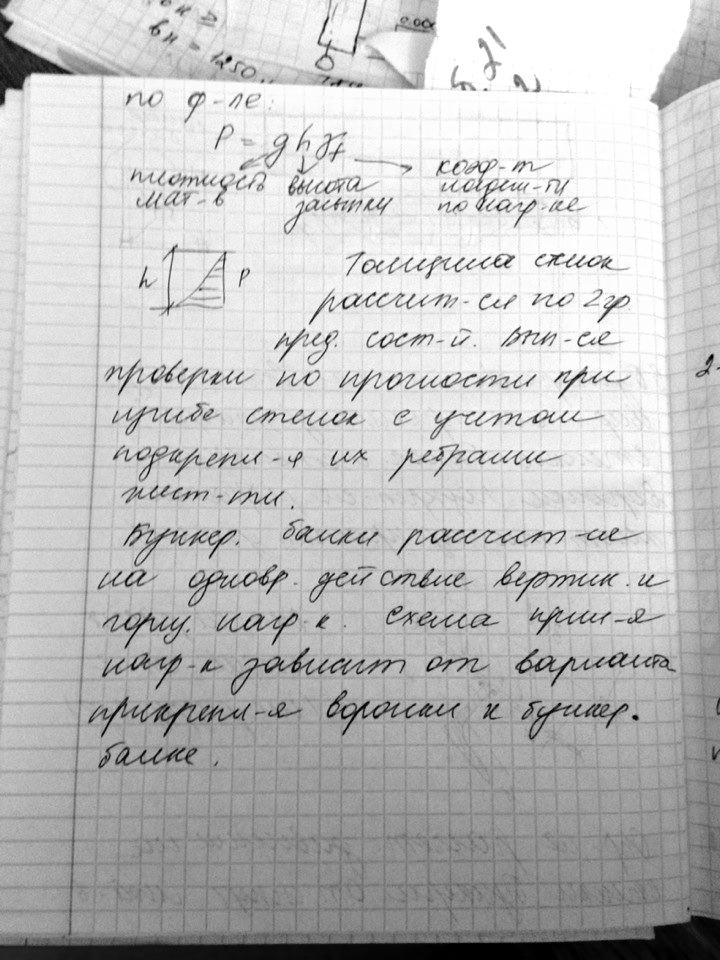 вн = 1250
по ф-ле:
P = g h γf
плотность высота коэф-т
мат-в засыпки надеж-ти
по нагр-ке
h P
Толщина стенок
рассчит-ся по 2гр.
пред. сост-й. Вып-ся
проверки по прочности при
изгибе стенок с учетом
подкрепл-я их ребрами
жест-ти.
Бункер. балки рассчит-ые
на одновр. действие вертик. и
гориз. нагр-к. Схема прил-я
нагр-к зависит от варианта
прикрепл-я воронки к бункер.
балке.